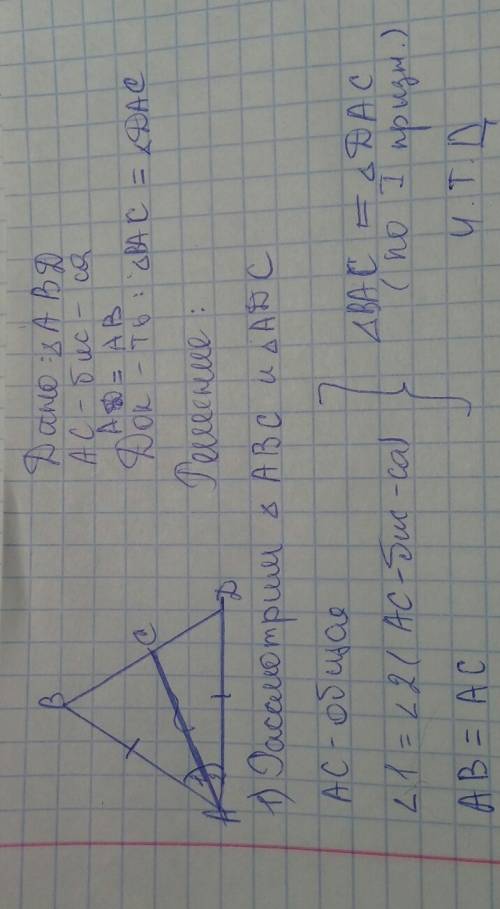 Дано: △ABD
AC - бис-са
AD = AB
Док-ть: △BAC = △DAC
Решение:
B
C
A
D
1) Рассмотрим △ABC и △ADC
AC - общая
∠1 = ∠2 (AC - бис-са)
AB = AC
△BAC = △DAC
(по I призн.)
Ч.Т.Д